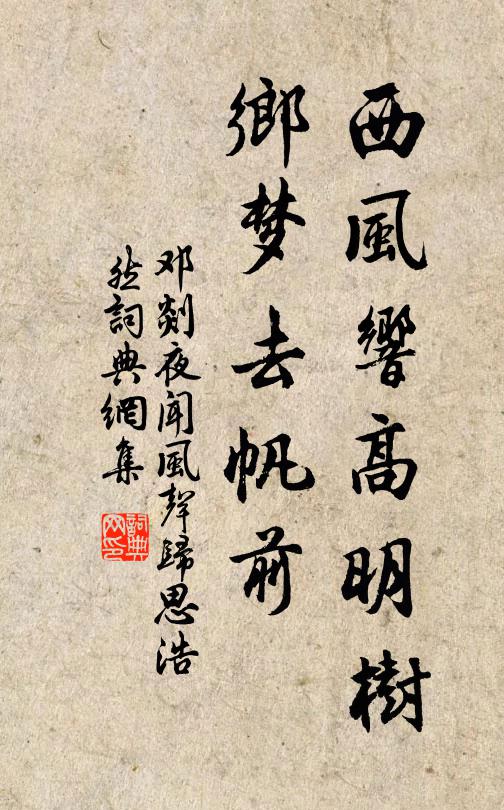 西風響高明樹
鄉梦去帆前
邓剡夜聞風聲歸思浩
然詞典網集
詞典
网印